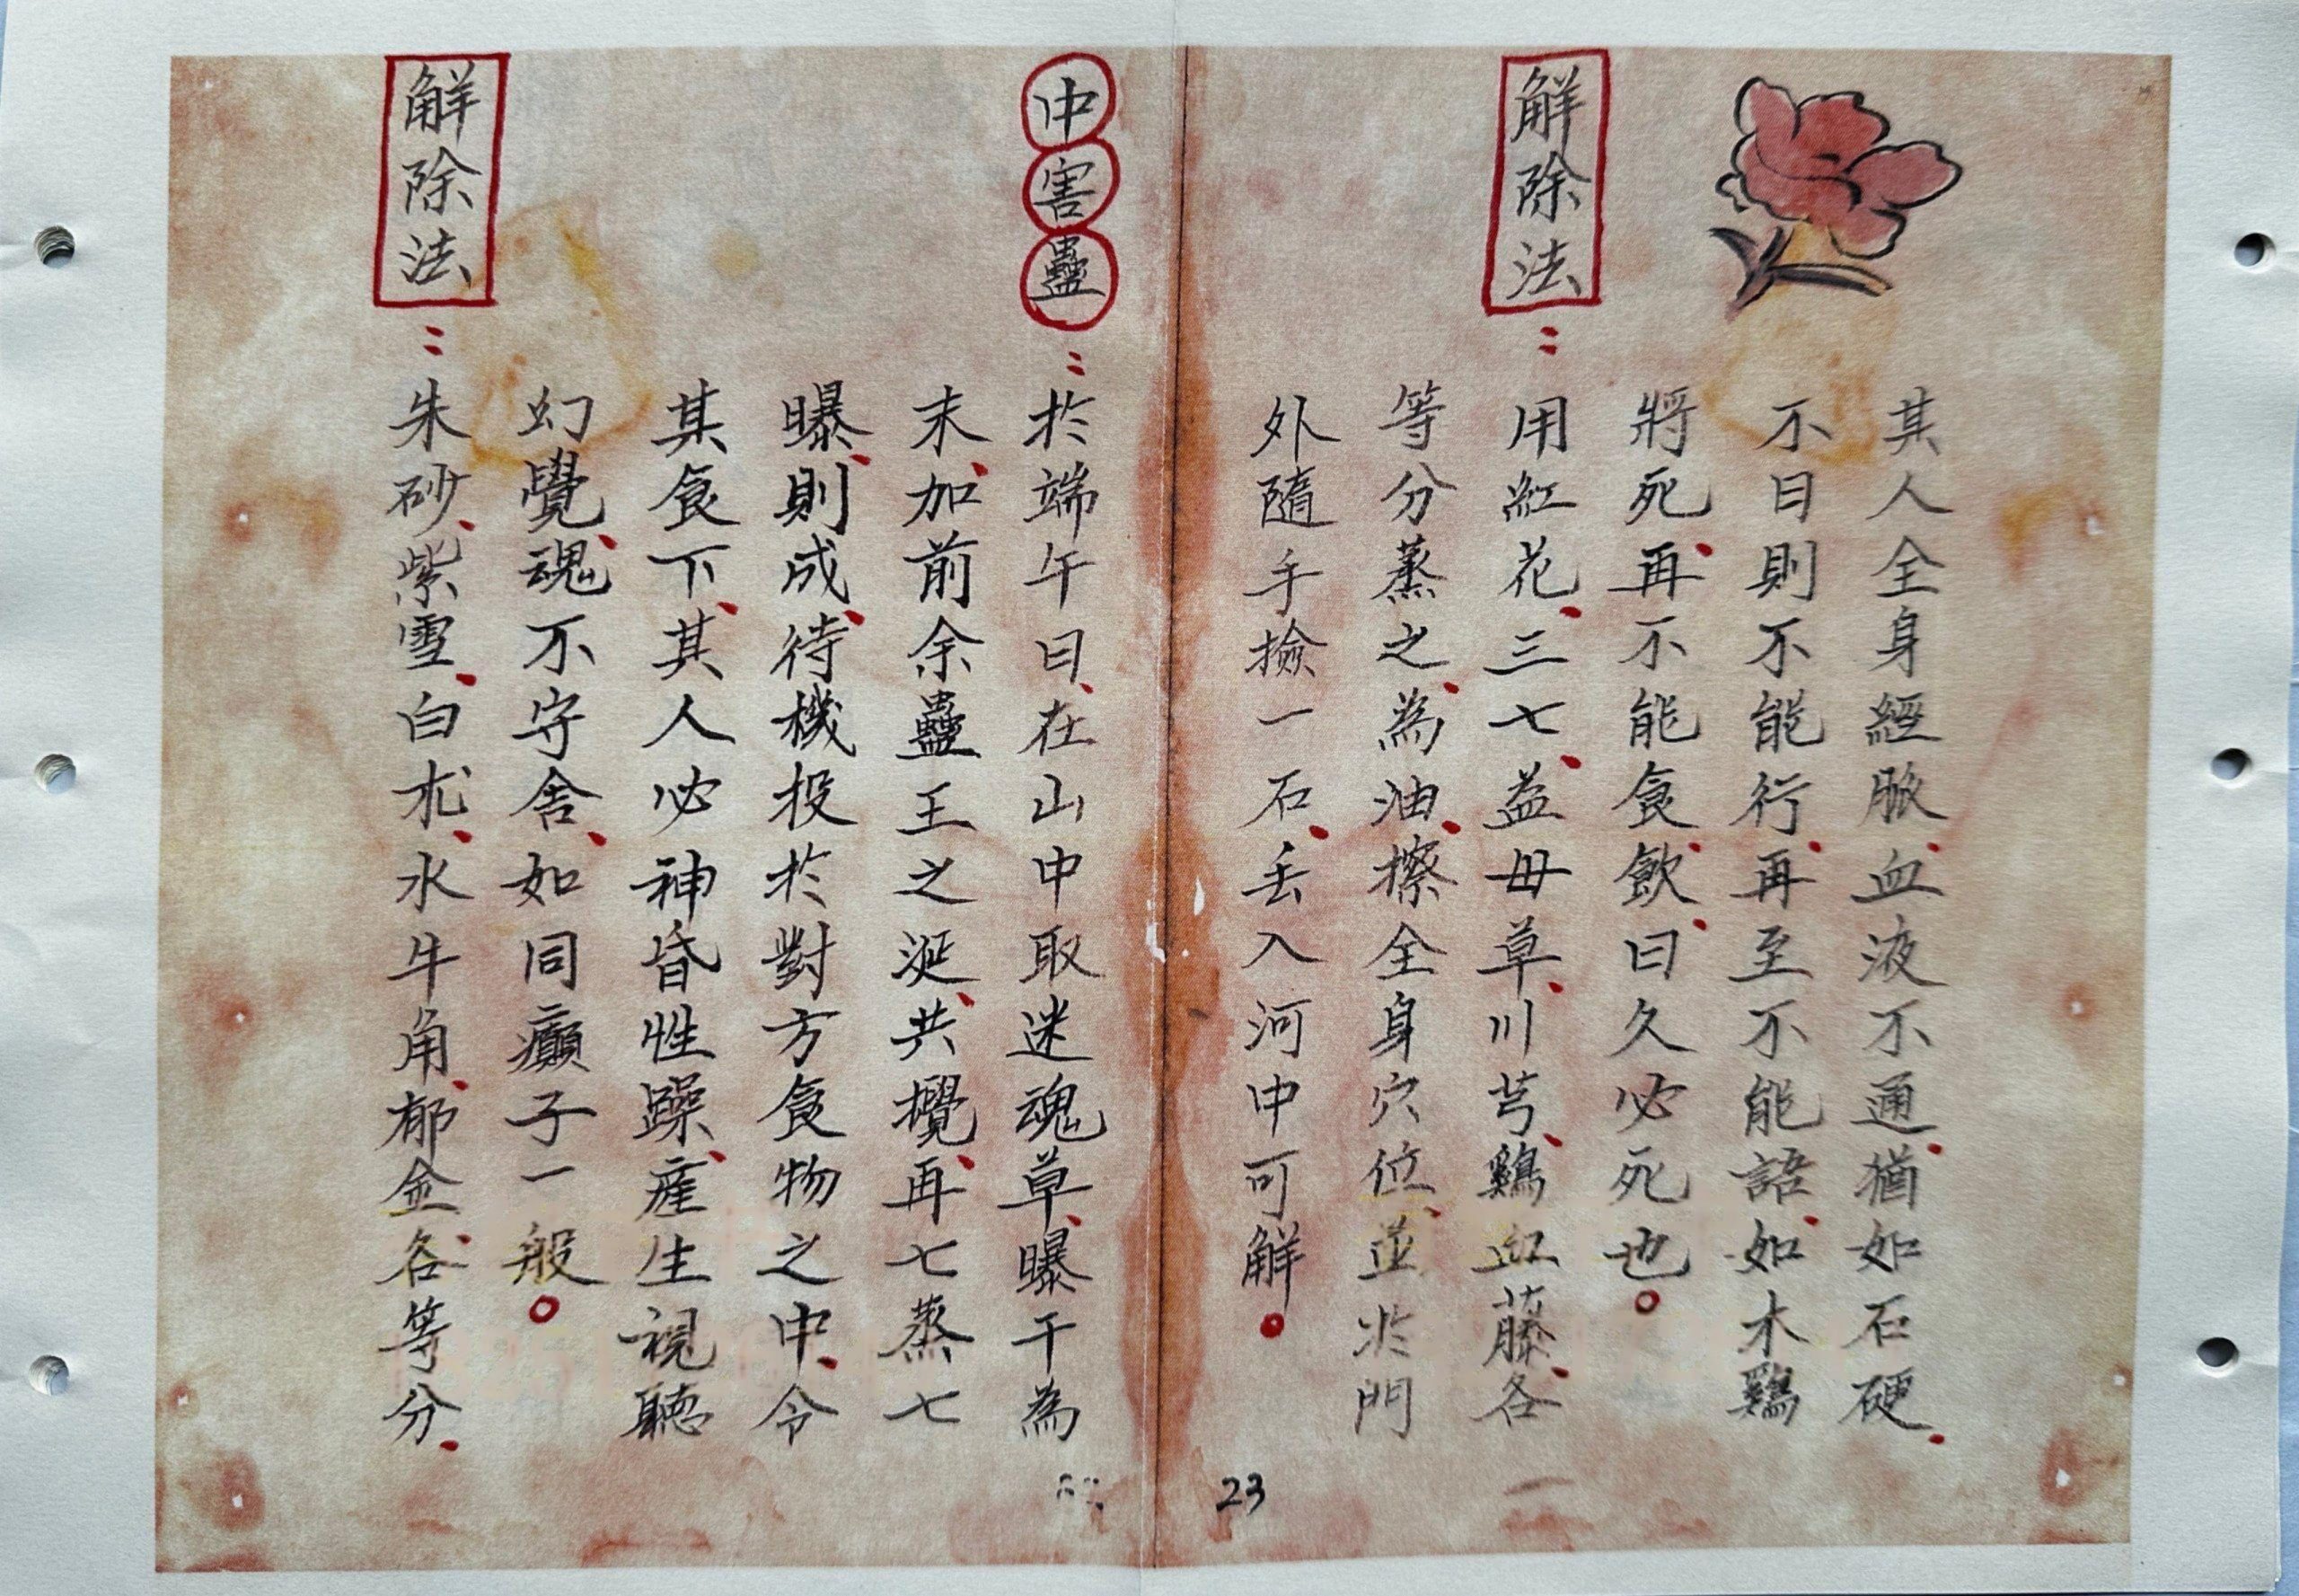 其人全身經脈、血液不通、猶如石硬、
不日則不能行、再至不能語、如木鷄
將死、再不能食、飲、日久必死也。
解除法：用紅花、三七、益母草、川芎、鷄血藤、各
等分蒸之、為油、擦全身穴位、並於門
外隨手撿一石、丢入河中可解。
23
中害蠱：於端午日、在山中取迷魂草、曝干為
末、加前余蠱王之涎、共攪、再七蒸七
曝、則成、待機投於對方食物之中、令
其食下、其人必神昏性躁、産生視聽
幻覺、魂不守舍、如同癲子一般。
解除法：朱砂、紫雪、白朮、水牛角、郁金、各等分、